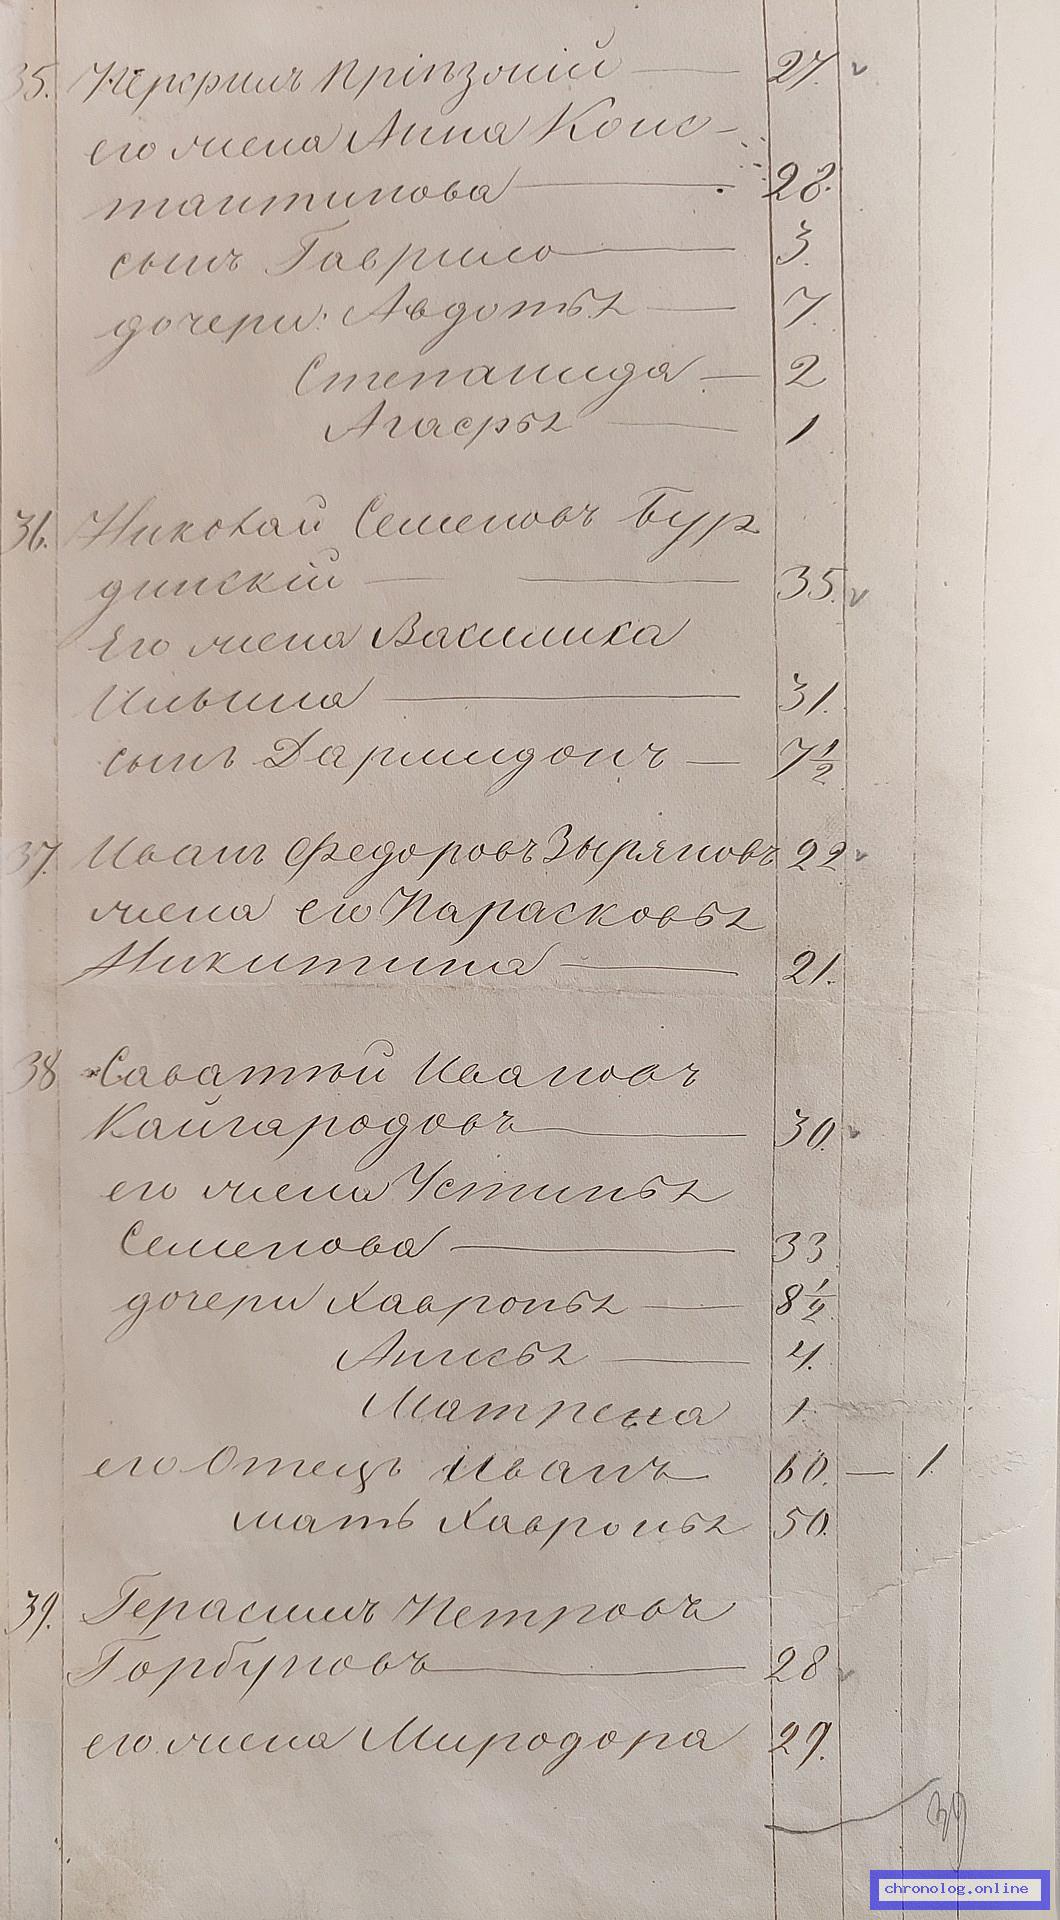 35. Перфилъ Пріезжій — 27.
его жена Анна Конс-
тантинова — 28.
сынъ Гаврило — 3.
дочери: Авдотья — 7.
Степанида — 2
Агафья — 1
36. Николай Семеновъ Бур
динскій — 35.
Его жена Василиха
Ильина — 31.
сынъ Дармидонъ — 7 1/2
37. Иванъ Федоровъ Зыряновъ 22
жена его Парасковья
Никитина — 21.
38 Саватій Ивановъ
Кайгародовъ — 30.
его жена Устинья
Семенова — 33
дочери Хавронья — 8 1/2
Анисья — 4.
Матрена 1.
его Отецъ Иванъ 60. — 1.
мать Хавронья 50.
39. Герасимъ Петровъ
Горбуновъ — 28
его жена Миродора 29.
39
chronolog.online